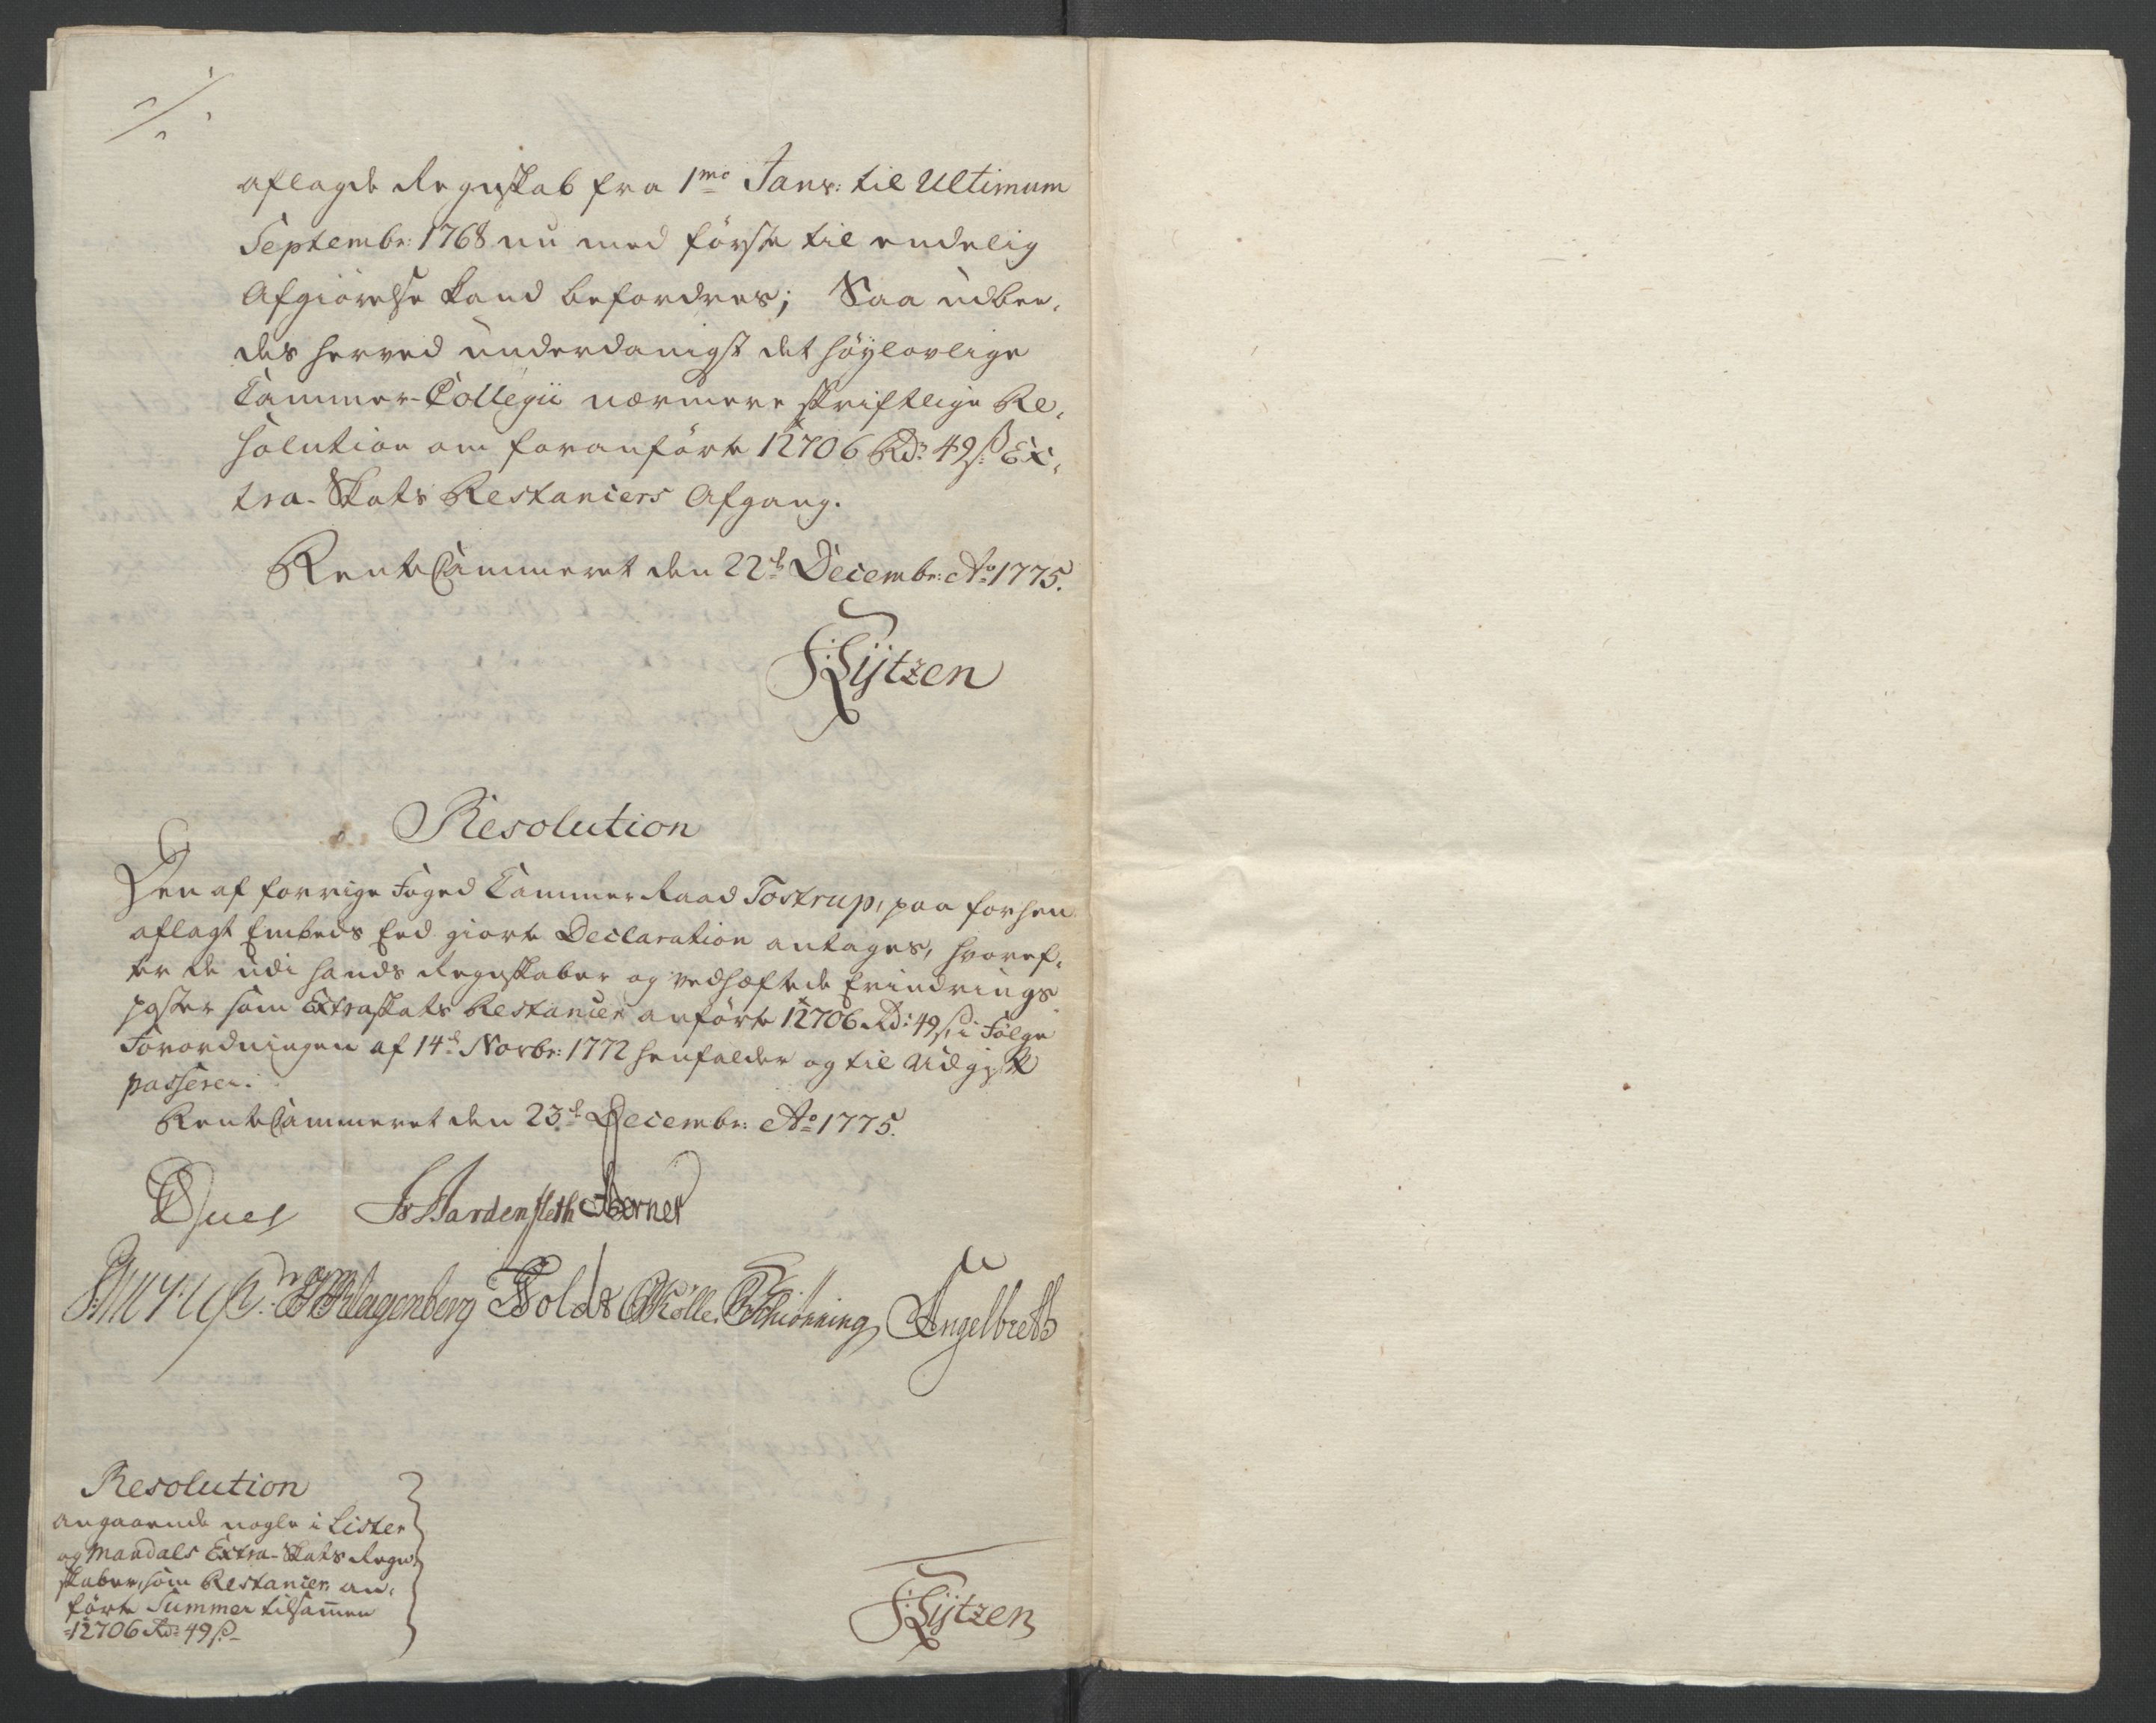 aflagde Regnskab fra 1mo Janr: til Ultimum
Septembr: 1768 nu med første til endelig
Afgiørelse kand befordres; Saa udbee,
des herved underdanigst det høylovlige
Cammer-Collegii nærmere skriftlige Re,
solution om foranførte 12706 Rd: 49 ß: Ex,
tra-Skats Restanciers Afgang.
RenteCammeret den 22d Decembr: Ao 1775.
Lÿtzen
Resolution
Den af forrige Foged CammerRaad Tostrup, paa forhen
aflagt Embeds Eed giorte Declaration antages, hvoref,
ter de udi hands Regnskaber og vedhæftede Erindrings
poster som Extraskats Restancier anførte 12706 Rd: 49 ß, i Følge
Forordningen af 14d Novbr: 1772 henfalder og til Udgift
passerer.
RenteCammeret den 23d Decembr: Ao 1775.
Hardenfleth Berner
Klagenberg Holdt Kölle Schiönning Engelbreth
Resolution
angaaende nogle i Lister
og Mandals Extra-Skats Regn,
skaber, som Restancier an,
førte Summer tilsammen
12706 Rd: 49 ß
Lÿtzen